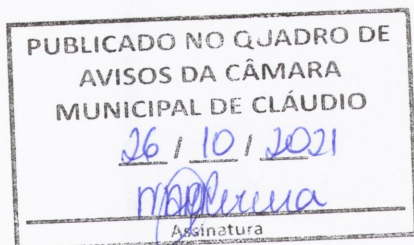 PUBLICADO NO QUADRO DE
AVISOS DA CÂMARA
MUNICIPAL DE CLÁUDIO
26 / 10 / 2021
Assinatura